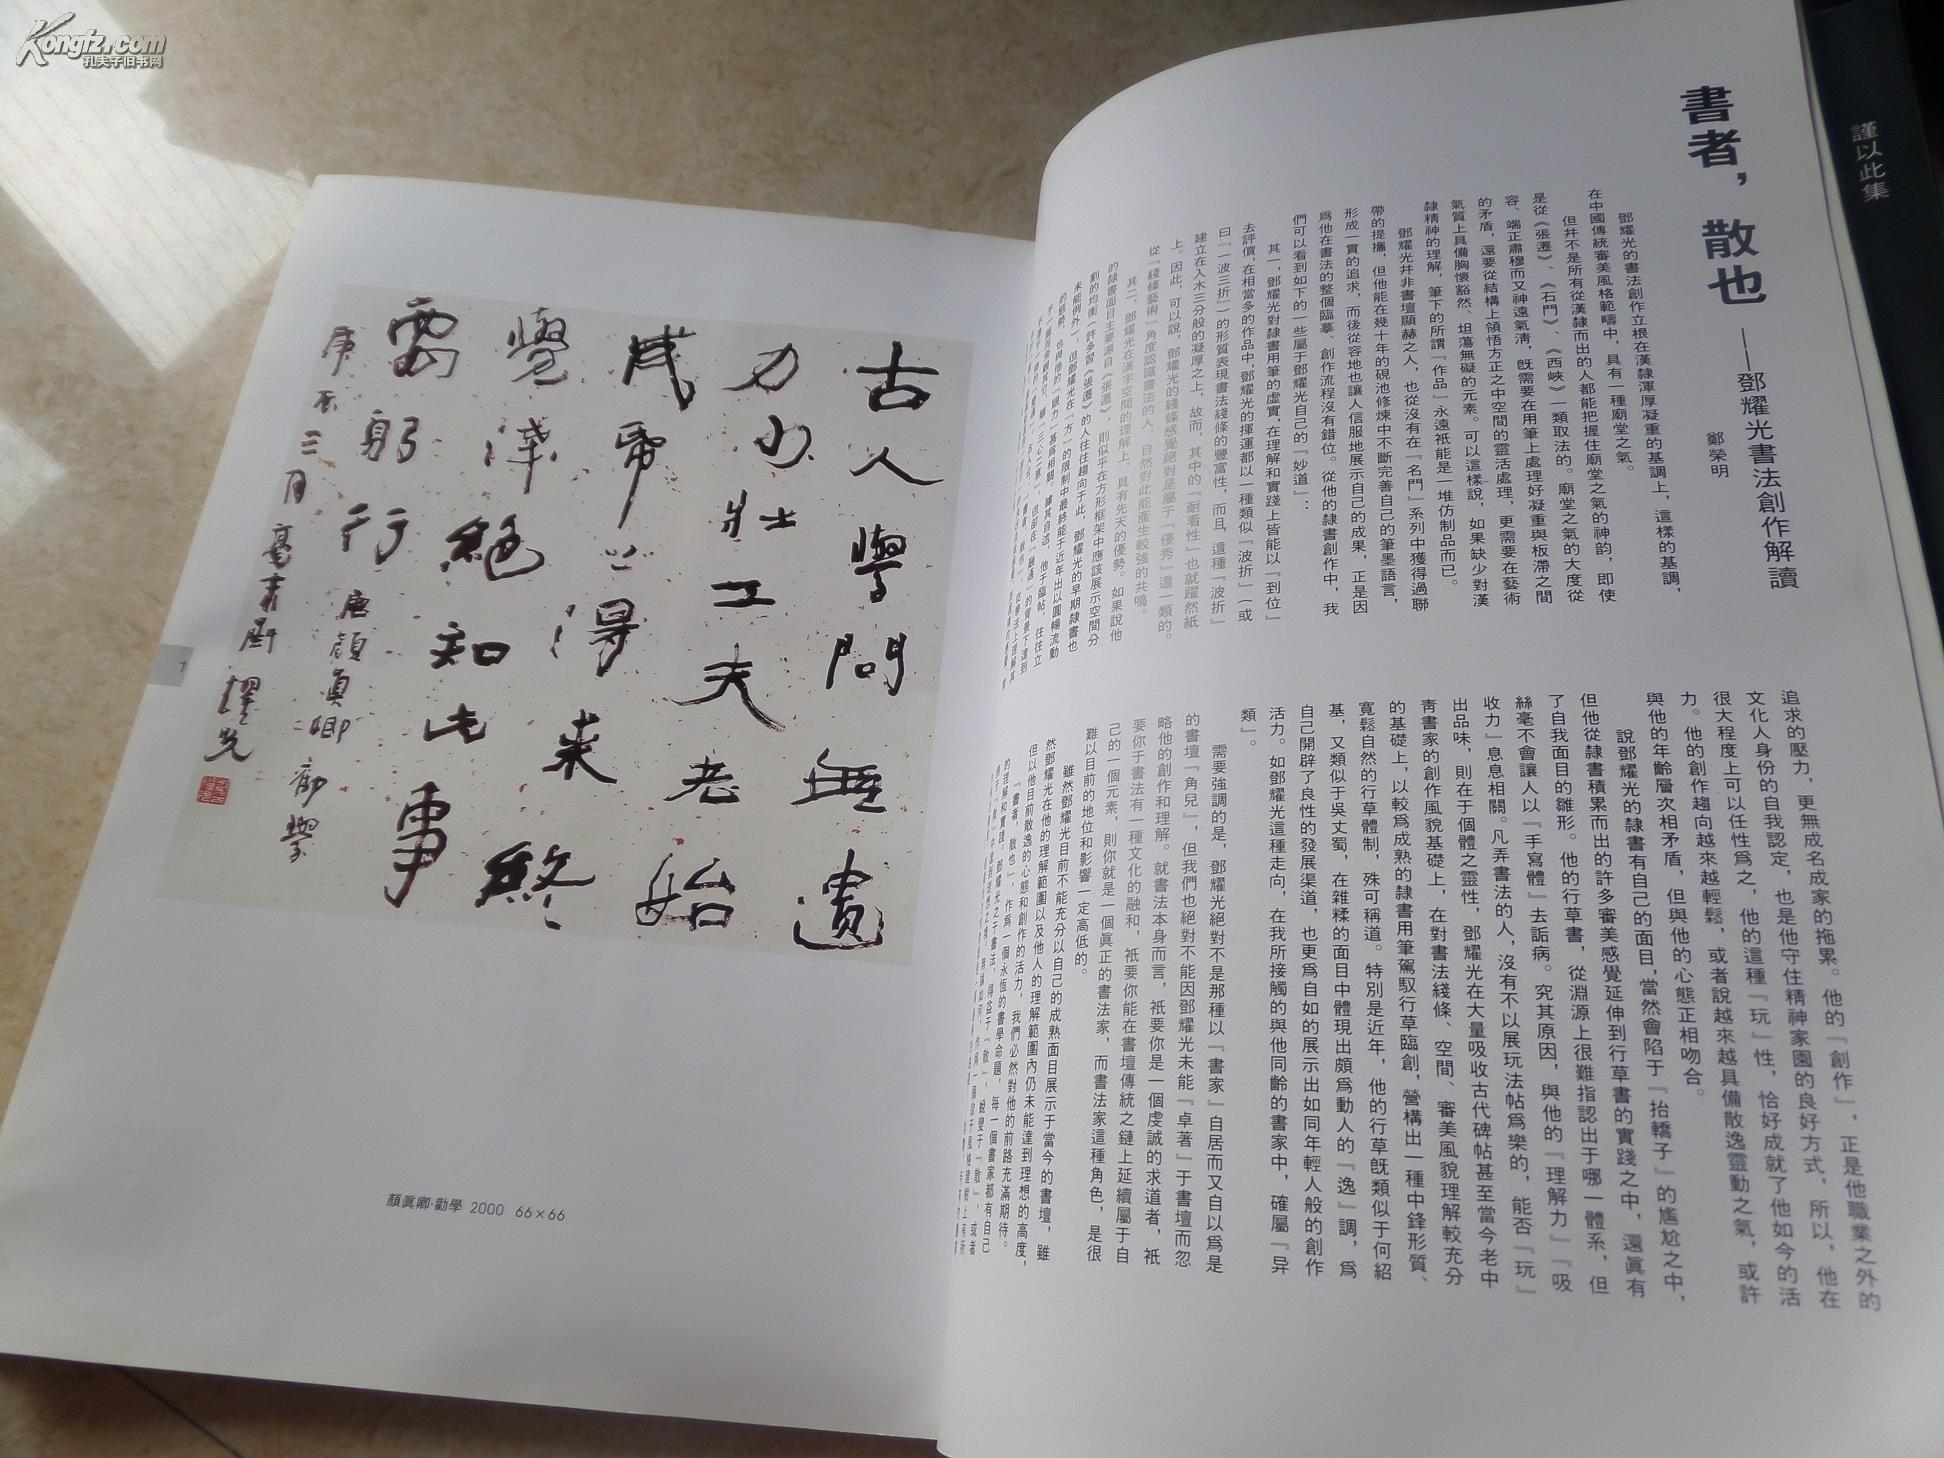 Kongfz.com
孔夫子旧书网
謹以此集
書者，散也
——鄧耀光書法創作解讀
鄭榮明
鄧耀光的書法創作立根在漢隸渾厚凝重的基調上，這樣的基調，
在中國傳統審美風格範疇中，具有一種廟堂之氣。
但幷不是所有從漢隸而出的人都能把握住廟堂之氣的神韵，即使
是從《張遷》、《石門》、《西峽》一類取法的。廟堂之氣的大度從
容、端正肅穆而又神遠氣清，既需要在用筆上處理好凝重與板滯之間
的矛盾，還要從結構上領悟方正之中空間的靈活處理，更需要在藝術
氣質上具備胸懷豁然、坦蕩無礙的元素。可以這樣說，如果缺少對漢
隸精神的理解，筆下的所謂『作品』永遠祇能是一堆仿制品而已。
鄧耀光幷非書壇顯赫之人，也從沒有在『名門』系列中獲得過聯
帶的提攜，但他能在幾十年的硯池修煉中不斷完善自己的筆墨語言，
形成一貫的追求，而後從容地也讓人信服地展示自己的成果，正是因
爲他在書法的整個臨摹、創作流程沒有錯位。從他的隸書創作中，我
們可以看到如下的一些屬于鄧耀光自己的『妙道』：
其一，鄧耀光對隸書用筆的虛實，在理解和實踐上皆能以『到位』
去評價，在相當多的作品中，鄧耀光的揮運都以一種類似『波折』（或
曰『一波三折』）的形質表現書法綫條的豐富性，而且，這種『波折』
建立在入木三分般的凝厚之上，故而，其中的『耐看性』也就躍然紙
上。因此，可以說，鄧耀光的綫條感覺絕對是屬于『優秀』這一類的。
從『綫條藝術』角度認識書法的人，自然對此能產生較強的共鳴。
其二，鄧耀光在漢字空間的理解上，具有先天的優勢。如果說他
的隸書面目主要源自《張遷》，則似乎在方形框架中應該展示空間分
割的均衡（許多習《張遷》的人往往趨向于此，鄧耀光的早期隸書也
未能例外），但鄧耀光在『方』的限制中最終能于近年出以圓暢流動
的態勢，也與他的『眼力』甚爲相關。
追求的壓力，更無成名成家的拖累。他的『創作』，正是他職業之外的
文化人身份的自我認定，也是他守住精神家園的良好方式，所以，他在
很大程度上可以任性爲之，他的這種『玩』性，恰好成就了他如今的活
力。他的創作趨向越來越輕鬆，或者說越來越具備散逸靈動之氣，或許
與他的年齡層次相矛盾，但與他的心態正相吻合。
說鄧耀光的隸書有自己的面目，當然會陷于『抬轎子』的尷尬之中，
但他從隸書積累而出的許多審美感覺延伸到行草書的實踐之中，還眞有
了自我面目的雛形。他的行草書，從淵源上很難指認出于哪一體系，但
絲毫不會讓人以『手寫體』去詬病。究其原因，與他的『理解力』『吸
收力』息息相關。凡弄書法的人，沒有不以展玩法帖爲樂的，能否『玩』
出品味，則在于個體之靈性，鄧耀光在大量吸收古代碑帖甚至當今老中
青書家的創作風貌基礎上，在對書法綫條、空間、審美風貌理解較充分
的基礎上，以較爲成熟的隸書用筆駕馭行草臨創，營構出一種中鋒形質、
寬鬆自然的行草體制，殊可稱道。特別是近年，他的行草既類似于何紹
基，又類似于吳丈蜀，在雜糅的面目中體現出頗爲動人的『逸』調，爲
自己開辟了良性的發展渠道，也更爲自如的展示出如同年輕人般的創作
活力。如鄧耀光這種走向，在我所接觸的與他同齡的書家中，確屬『异
類』。
需要強調的是，鄧耀光絕對不是那種以『書家』自居而又自以爲是
的書壇『角兒』，但我們也絕對不能因鄧耀光未能『卓著』于書壇而忽
略他的創作和理解。就書法本身而言，祇要你是一個虔誠的求道者，祇
要你于書法有一種文化的融和，祇要你能在書壇傳統之鏈上延續屬于自
己的一個元素，則你就是一個眞正的書法家，而書法家這種角色，是很
難以目前的地位和影響一定高低的。
雖然鄧耀光目前不能充分以自己的成熟面目展示于當今的書壇，雖
然鄧耀光在他的理解範圍以及他人的理解範圍內仍未能達到理想的高度，
但以他目前散逸的心態和創作的活力，我們必然對他的前路充滿期待。
『書者，散也』，作爲一個永恆的書學命題，每一個書家都有自己
的理解和實踐。鄧耀光之于書法，得益于『散』，蛻變于『散』，或者
古人學問無遺
力少壯工夫老始
成紙上得來終
覺淺絕知此事
需躬行 唐顏眞卿勸學
庚辰三月 耀光
1
顏眞卿·勸學 2000 66×66